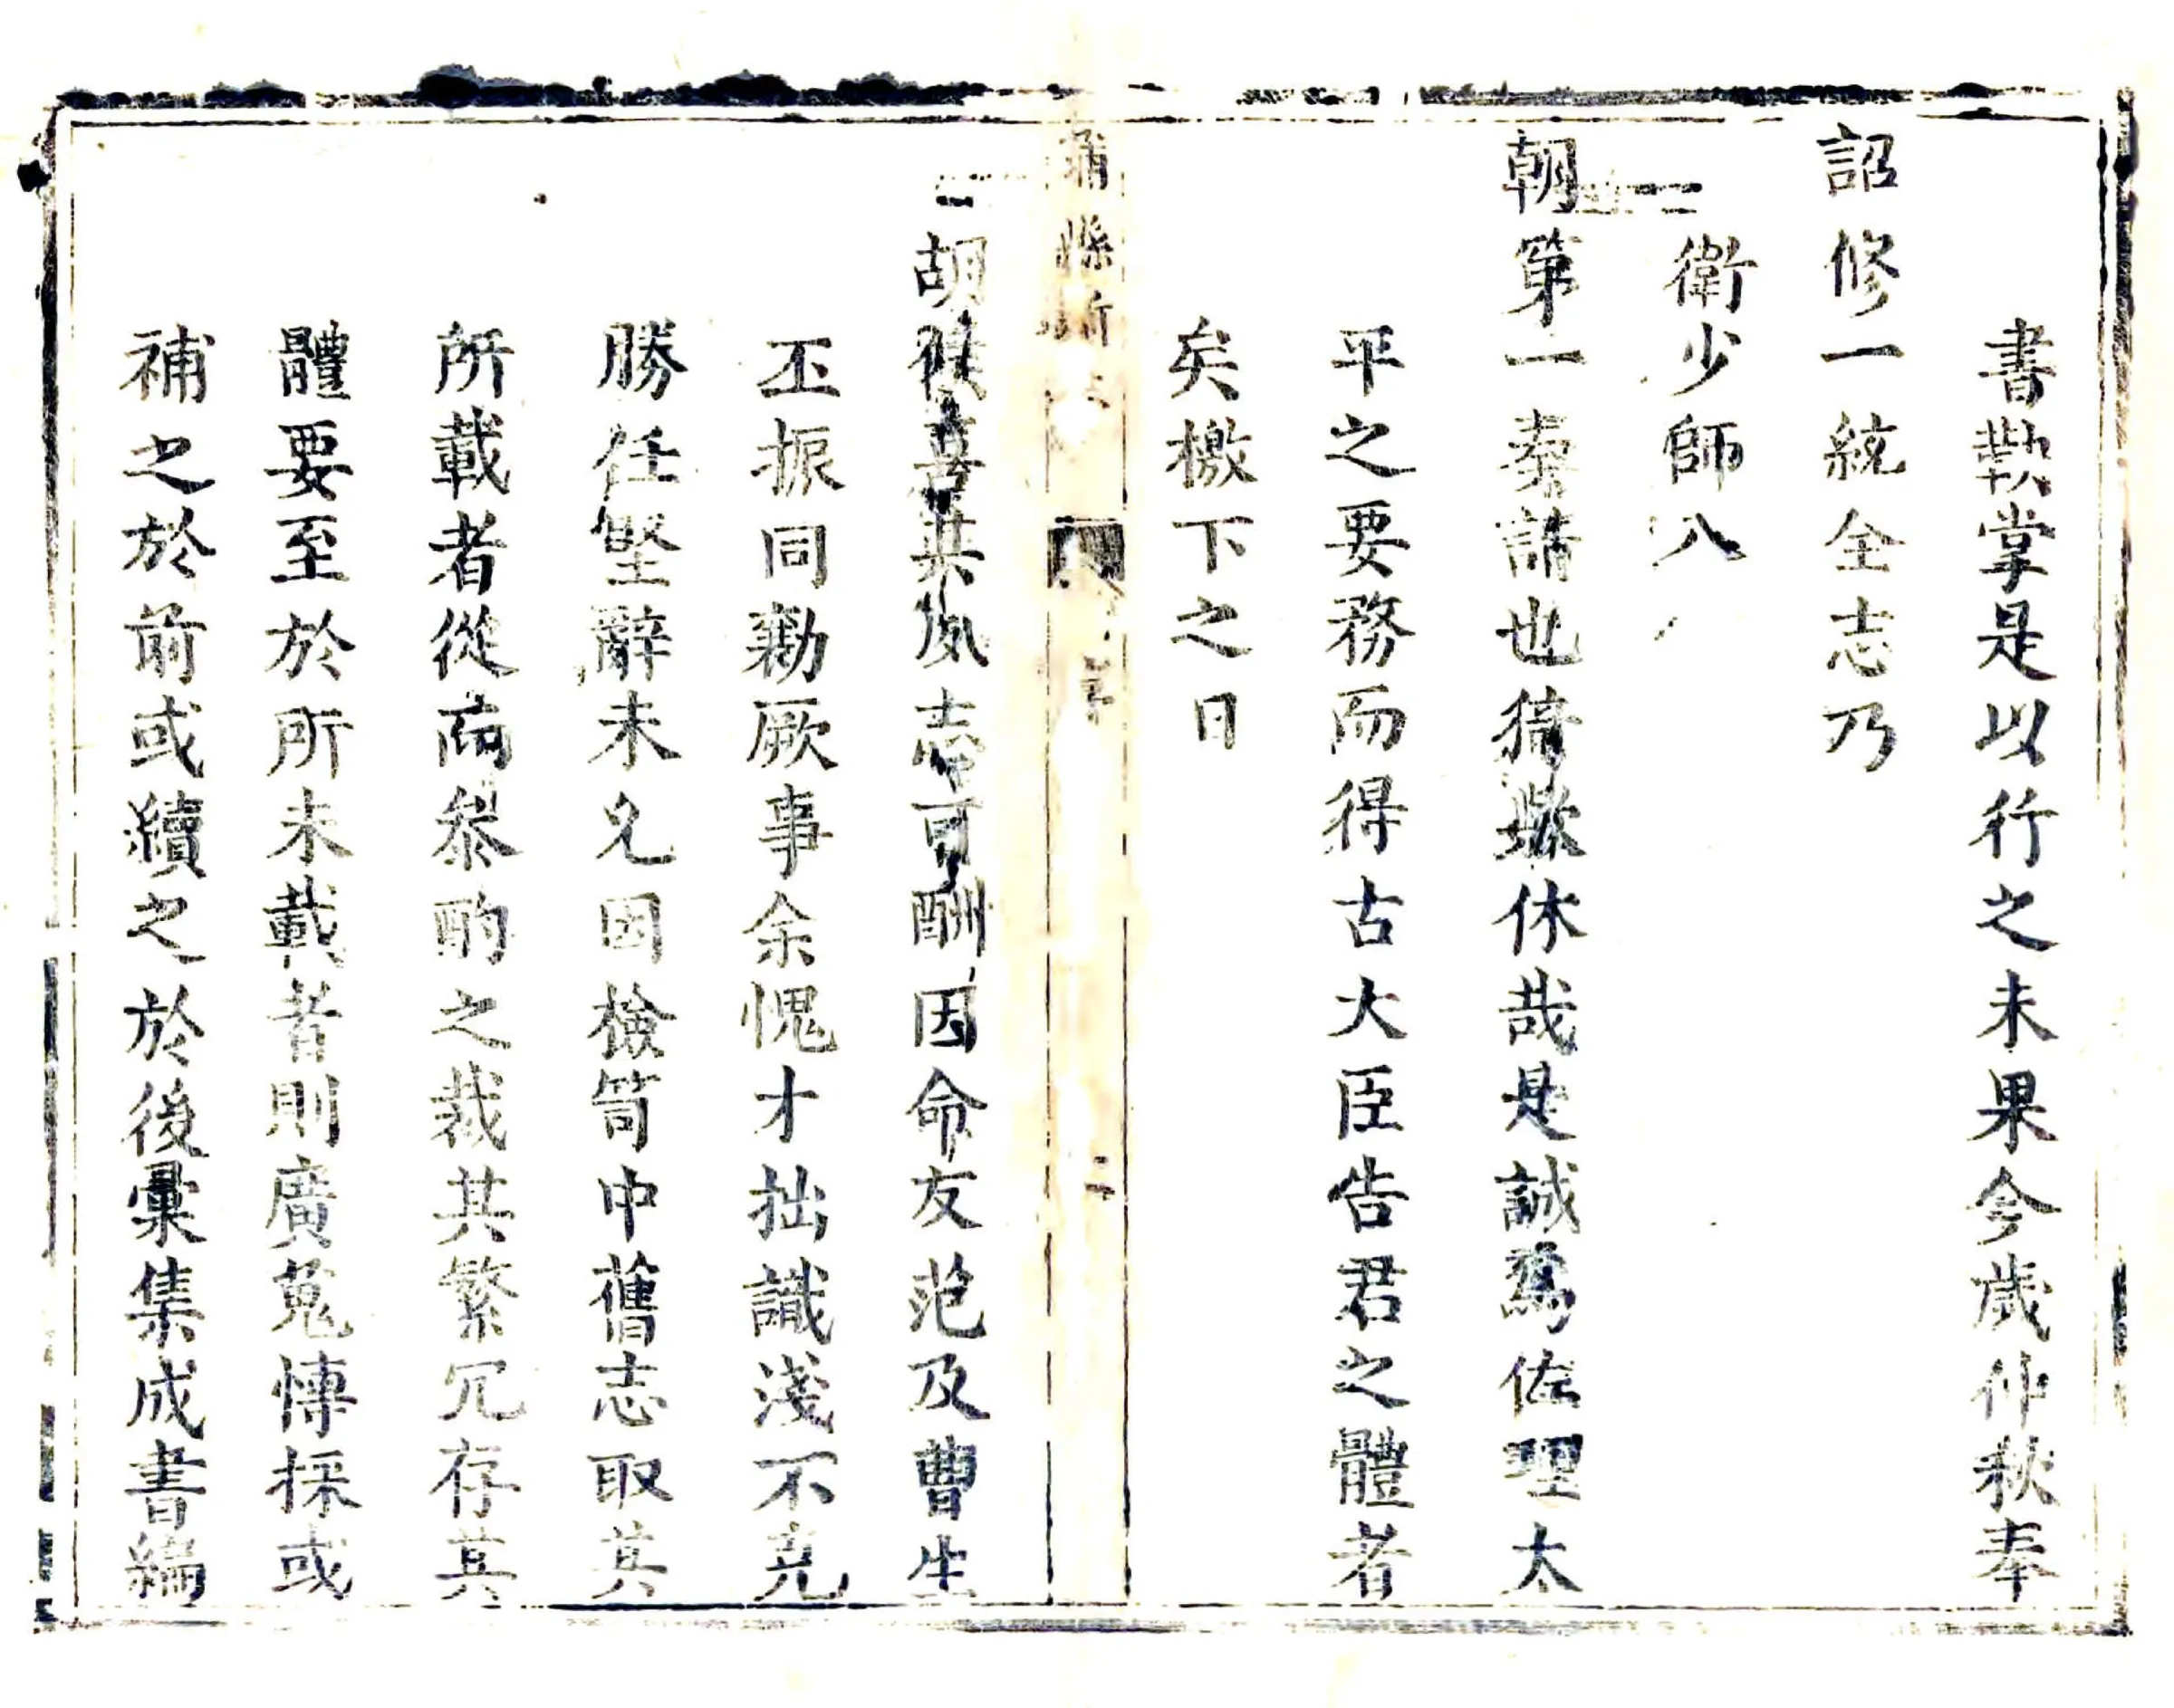 書欵掌是以行之未果今歲仲秋奉
詔修一統全志乃
衛少師入
朝第一奏請也猗歟休哉是誠爲佐理太
平之要務而得古大臣告君之體者
矣檄下之日
胡侯喜其夙志可酬因命友范及曹生
丕振同勷厥事余愧才拙識淺不克
勝任堅辭未允因檢笥中舊志取其
所載者從而叅酌之裁其繁冗存其
體要至於所未載者則廣蒐博採或
補之於前或續之於後彙集成書編
蒲縣新
二